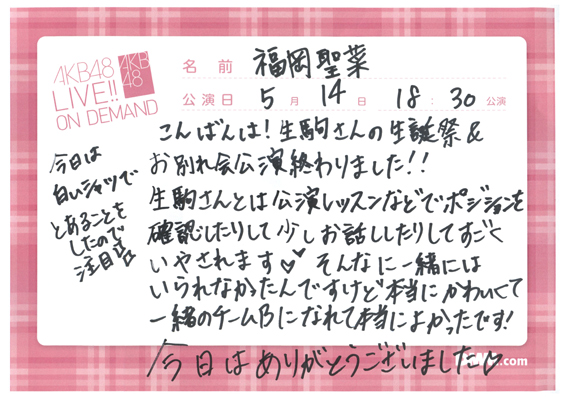 AKB48
LIVE!!
ON DEMAND
AKB
48
名前 福岡聖菜
公演日 5月 14日 18:30公演
こんばんは!生駒さんの生誕祭&
お別れ会公演終わりました!!
生駒さんとは公演レッスンなどでポジションを
確認したりして少しお話ししたりしてすごく
いやされます♡♡ そんなに一緒には
いられなかったんですけど本当にかわいくて
一緒のチームBになれて本当によかったです!
今日はありがとうございました♡
今日は
白いシャツで
とあることを
したので
注目☆☆
.com